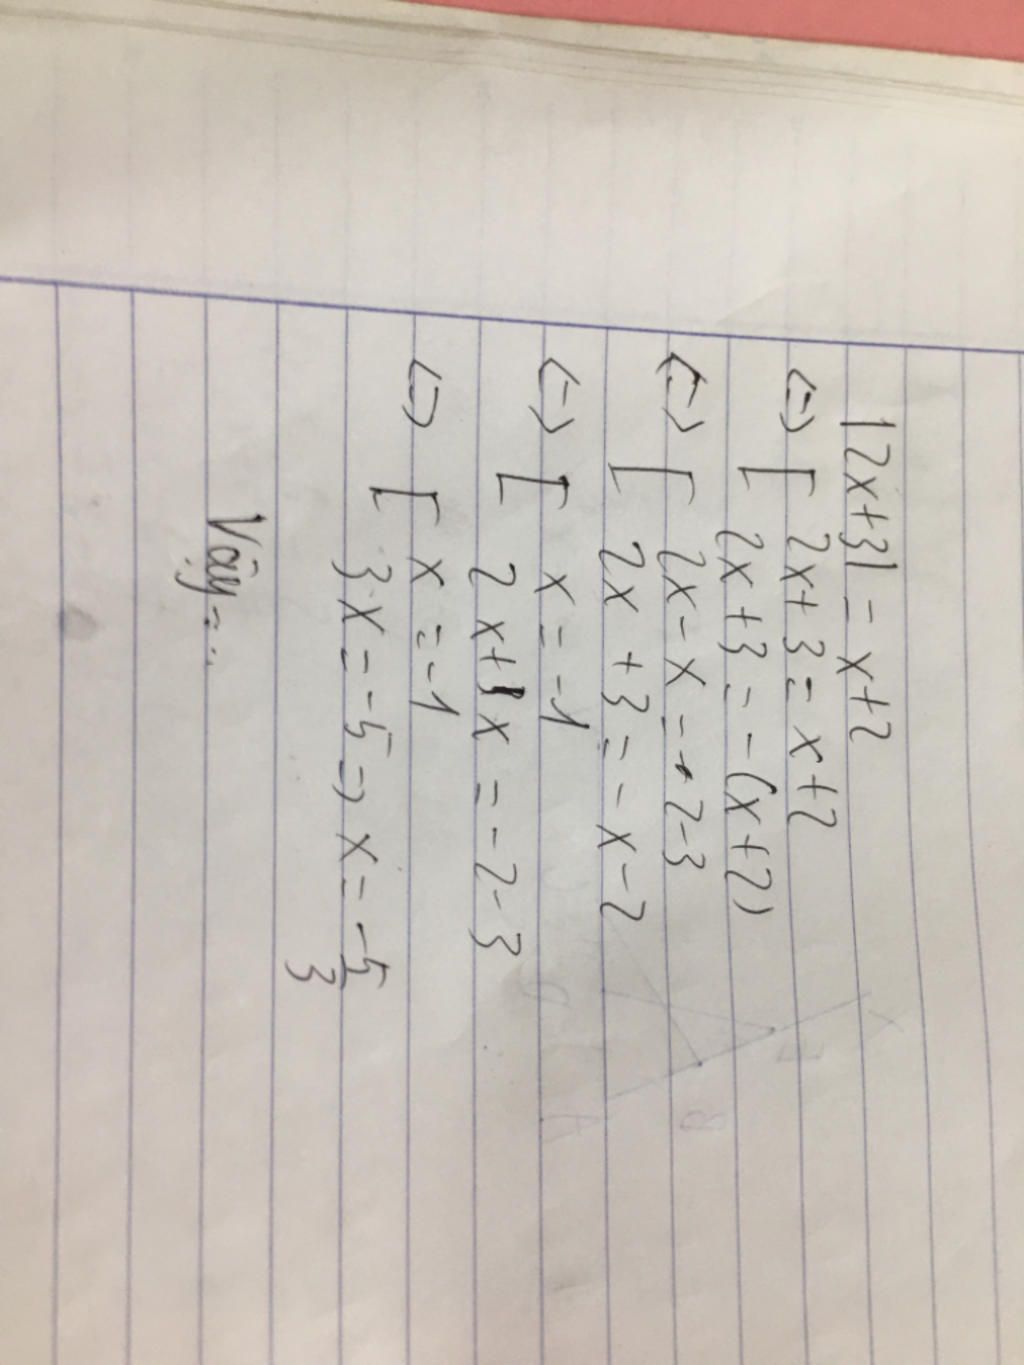 |2x+3| = x+2
<=> [ 2x+3 = x+2
2x+3 = -(x+2)
<=> [ 2x-x = 2-3
2x +3 = -x-2
<=> [ x = -1
2x+x = -2-3
<=> [ x = -1
3x = -5 => x = -5/3
Vậy...